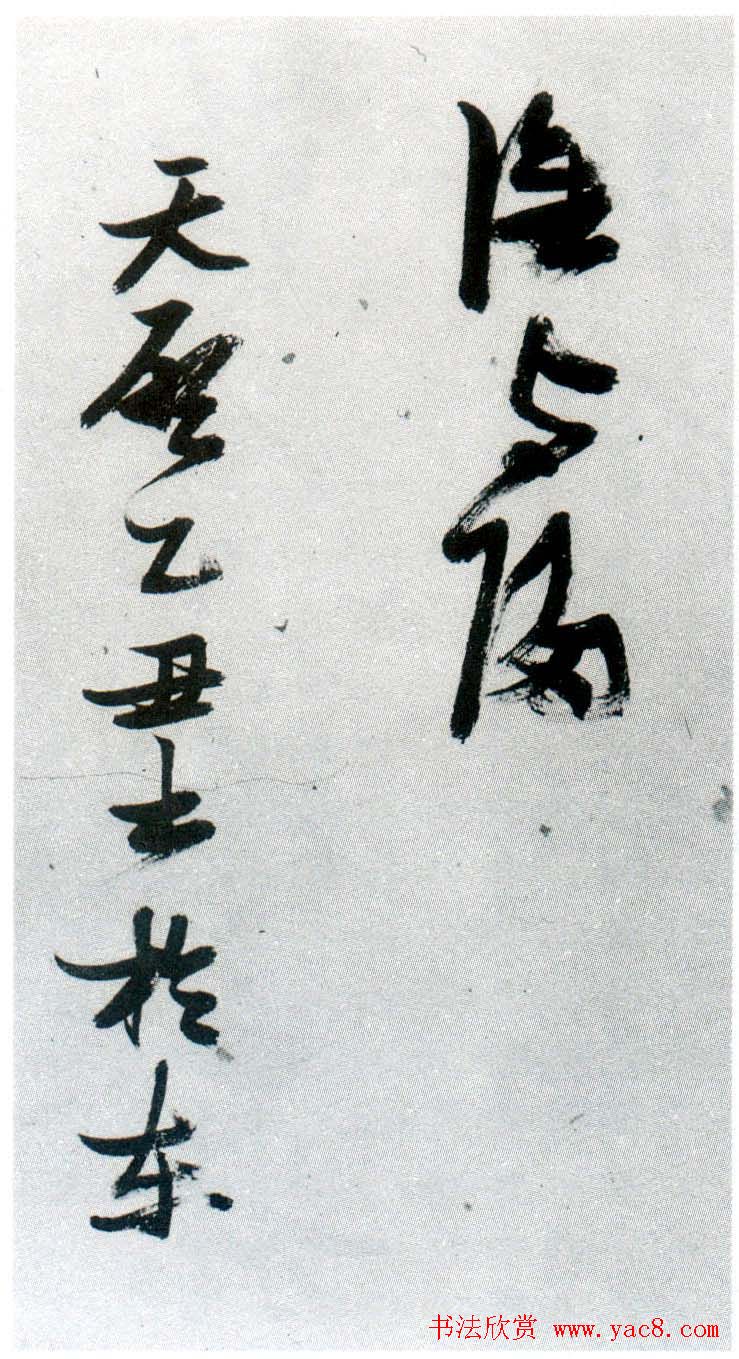 陰与陽
天啓乙丑士於東
书法欣赏 www.yac8.com